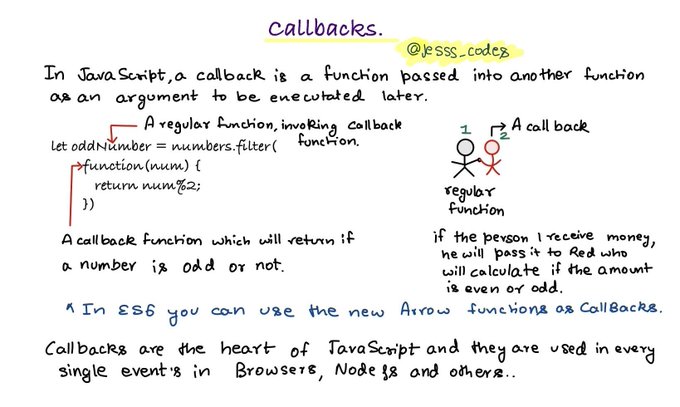 Callbacks.
@jesss_codes
In JavaScript, a callback is a function passed into another function
as an argument to be enecutated later.
A regular function, invoking callback
function.
let oddNumber = numbers.filter(
function(num) {
return num%2;
})
A callback function which will return if
a number is odd or not.
1
2
A call back
regular
function
if the person 1 receive money,
he will pass it to Red who
will calculate if the amount
is even or odd.
* In ES6 you can use the new Arrow functions as CallBacks.
Callbacks are the heart of JavaScript and they are used in every
single event's in Browsers, Node js and others..